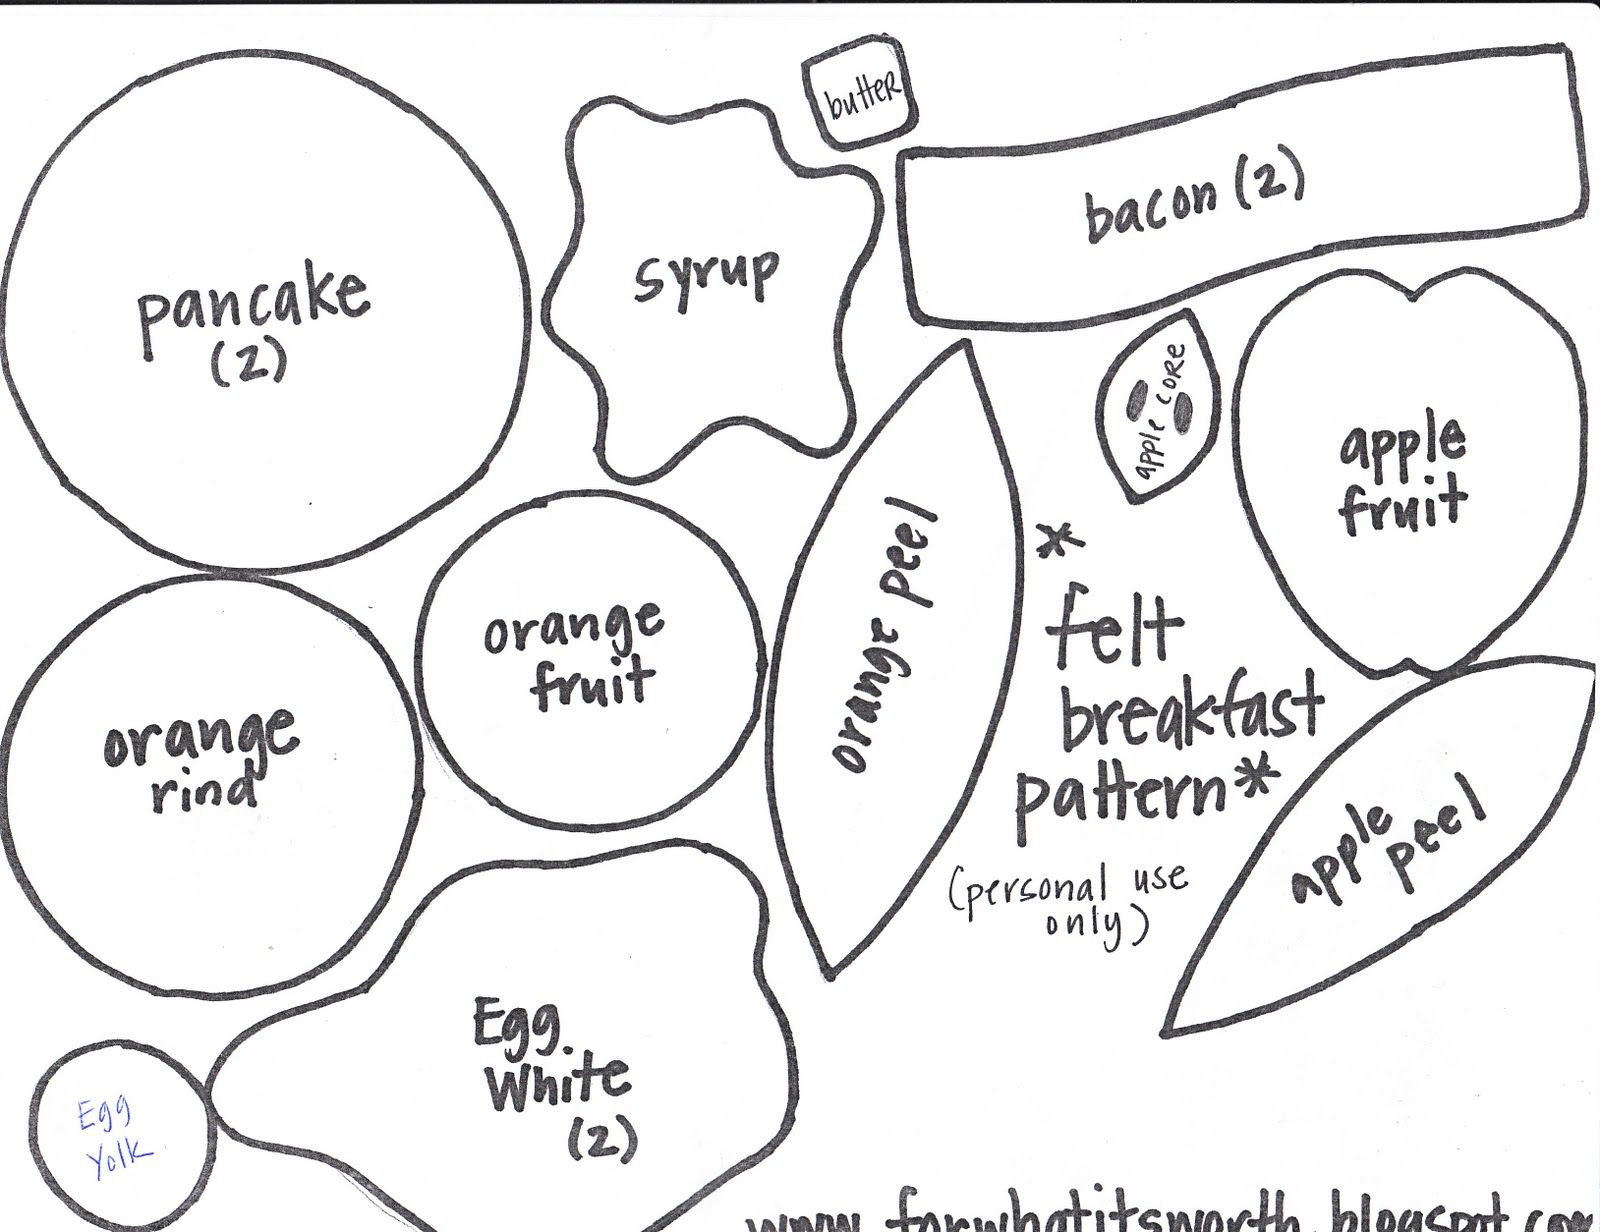 butter
bacon (2)
syrup
pancake
(2)
apple core
apple
fruit
orange peel
orange
fruit
*
felt
breakfast
pattern*
(personal use
only)
orange
rind
apple
peel
Egg
White
(2)
Egg
Yolk
www.forwhatitsworth.blogspot.com